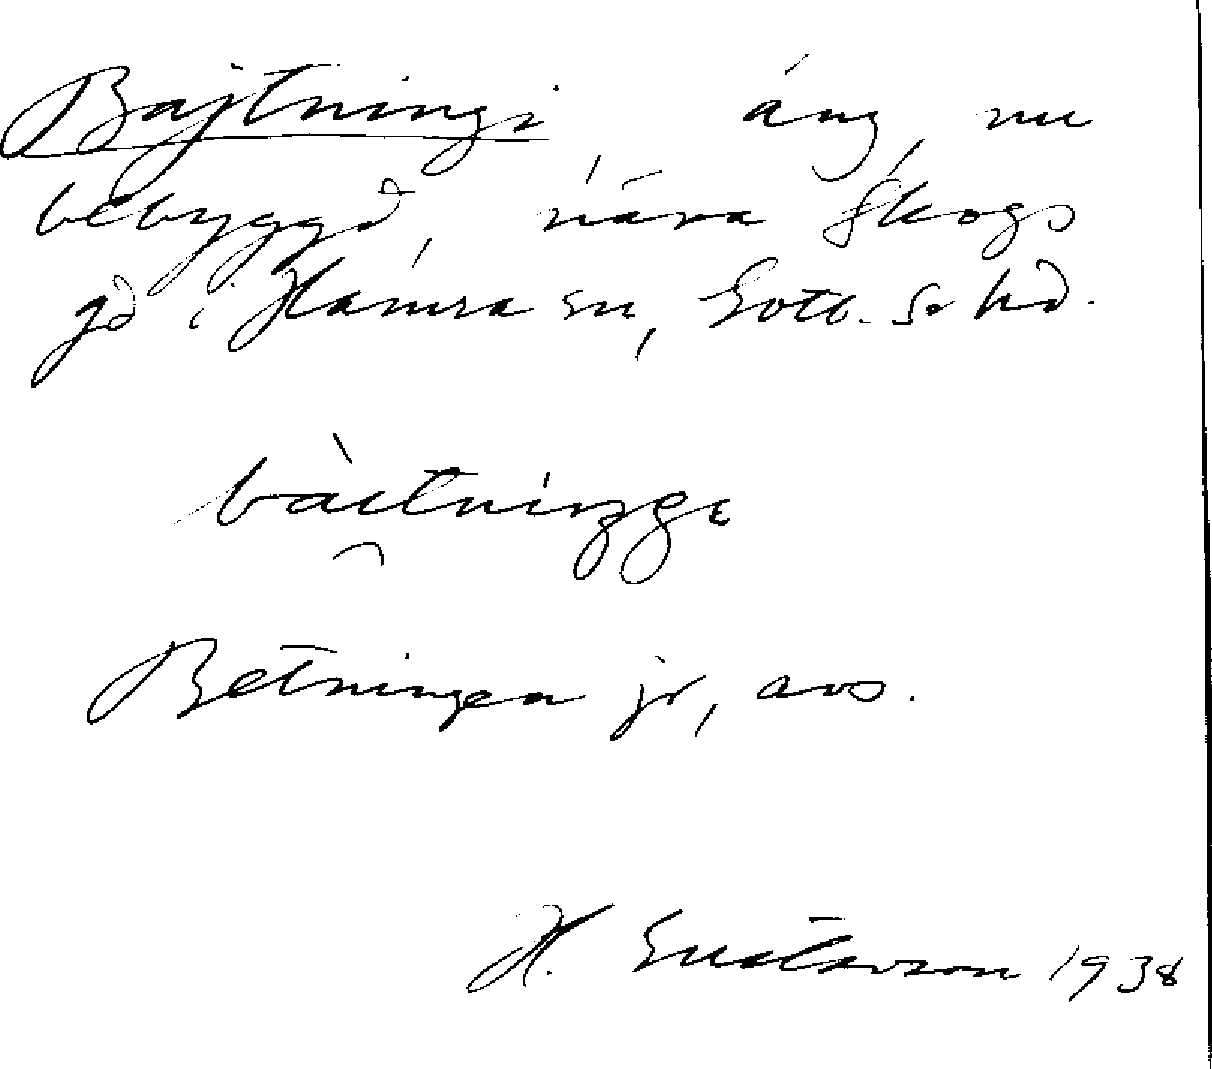 Bajtningi äng, nu
bebyggd, nära Skogs
gd i Hamra sn, Gotl. S. hd.
bàitningge
Betningen jr, avs.
H. Gustavson 1938